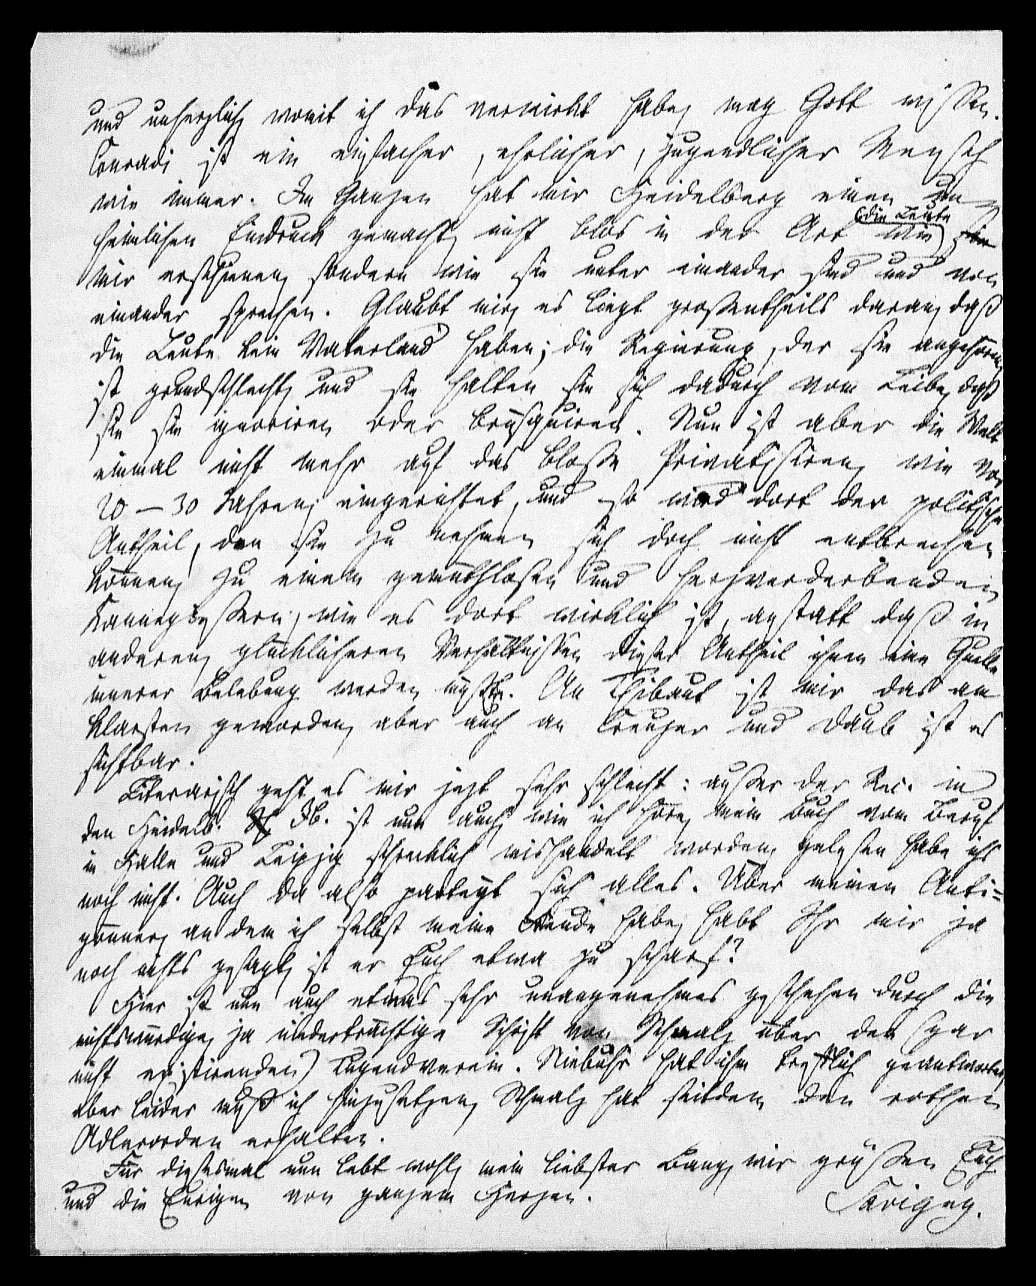 und unherzlich womit ich das verwirkt habe, mag Gott wissen.
Conradi ist ein einfacher, ehrlicher, jugendlicher Mensch
wie immer. Im Ganzen hat mir Heidelberg einen un-
heimlichen Eindruck gemacht, nicht blos in der Art wie die Leute
mir erschienen, sondern wie sie unter einander sind und von
einander sprechen. Glaubt mir, es liegt großentheils daran, daß
die Leute kein Vaterland haben; die Regierung, der sie angehören,
ist grundschlecht, und sie halten sie sich dadurch vom Leibe, daß
sie sie ignoriren oder brüsquiren. Nun ist aber die Welt
einmal nicht mehr auf das bloße Privatisiren, wie vor
20 – 30 Jahren, eingerichtet, und so wird dort der politische
Antheil, den sie zu nehmen sich doch nicht entbrechen
können, zu einem gemüthlosen und herzverderbenden
Kannegießern, wie es dort wirklich ist, anstatt daß in
anderen, glücklicheren Verhältnissen dieser Antheil ihnen eine Quelle
innerer Belebung werden müßte. An Thibaut ist mir das am
klarsten geworden, aber auch an Creuzer und Daub ist es
sichtbar.
Literarisch geht es mir jezt sehr schlecht: außer der Rec. in
den Heidelb. Jb. ist nun auch, wie ich höre, mein Buch vom Beruf
in Halle und Leipzig schrecklich mishandelt worden, gelesen habe ichs
noch nicht. Auch da also parteyt sich alles. Über meinen Anti-
gönner, an dem ich selbst meine Freude habe, habt Ihr mir ja
noch nichts gesagt, ist er Euch etwa zu scharf?
Hier ist nun auch etwas sehr unangenehmes geschehen durch die
nichtswürdige, ja niederträchtige Schrift von Schmalz über den (gar
nicht existirenden) Tugendverein. Niebuhr hat ihm trefflich geantwortet,
aber leider muß ich hinzusetzen, Schmalz hat seitdem den rothen
Adlerorden erhalten.
Für diesesmal nun lebt wohl, mein liebster Bang, wir grüßen Euch
und die Eurigen von ganzem Herzen. Savigny.